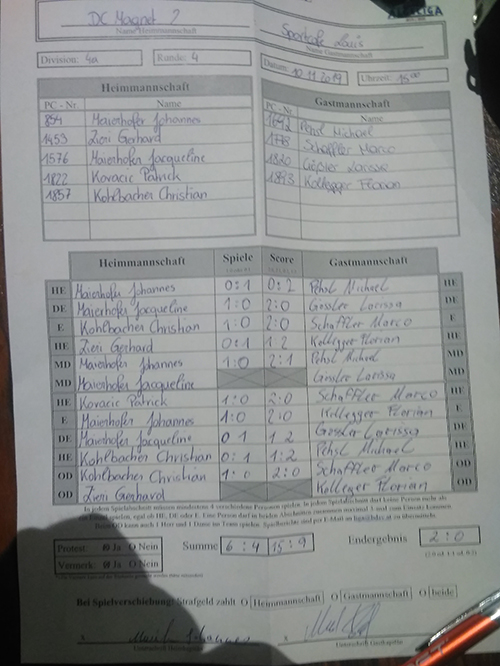 LIGA
DC Magnet 2
Name Heimmannschaft
Sportcafe Louis
Name Gastmannschaft
Division: 4a
Runde: 4
Datum: 10.11.2019
Uhrzeit: 15 00
Heimmannschaft
PC - Nr. Name
894 Maierhofer Johannes
1453 Zieri Gerhard
1576 Maierhofer Jacqueline
1822 Kovacic Patrick
1857 Kohlbacher Christian
Gastmannschaft
PC-Nr. Name
1692 Pehsl Michael
1775 Schaffler Marco
1820 Gössler Larissa
1893 Kollegger Florian
Heimmannschaft Spiele Score Gastmannschaft
HE Maierhofer Johannes 0:1 0:2 Pehsl Michael HE
DE Maierhofer Jacqueline 1:0 2:0 Gössler Larissa DE
E Kohlbacher Christian 1:0 2:0 Schaffler Marco E
HE Zieri Gerhard 0:1 1 2 Kollegger Florian HE
MD Maierhofer Johannes 1:0 2:1 Pehsl Michael MD
MD Maierhofer Jacqueline Gössler Larissa MD
HE Kovacic Patrick 1:0 2:0 Schaffler Marco HE
E Maierhofer Johannes 1:0 2:0 Kollegger Florian E
DE Maierhofer Jacqueline 0 1 1 2 Gössler Larissa DE
HE Kohlbacher Christian 0:1 1:2 Pehsl Michael HE
OD Kohlbacher Christian 1:0 2:0 Schaffler Marco OD
OD Zieri Gerhard Kollegger Florian OD
In jedem Spielabschnitt müssen mindestens 4 verschiedene Personen spielen. In jedem Spielabschnitt darf keine Person mehr als
ein Einzel spielen, egal ob HE, DE oder E. Eine Person darf in beiden Abschnitten zusammen maximal 3-mal zum Einsatz kommen.
Beim OD kann auch 1 Herr und 1 Dame im Team spielen. Spielberichte sind per E-Mail an zu übermitteln.
Protest: O Ja O Nein
Vermerk: O Ja O Nein
Summe 6 : 4 15 : 9
Endergebnis 2 : 0
Bei Spielverschiebung: Strafgeld zahlt O Heimmannschaft O Gastmannschaft O beide
x
x
Unterschrift Heimkapitän
Unterschrift Gastkapitän